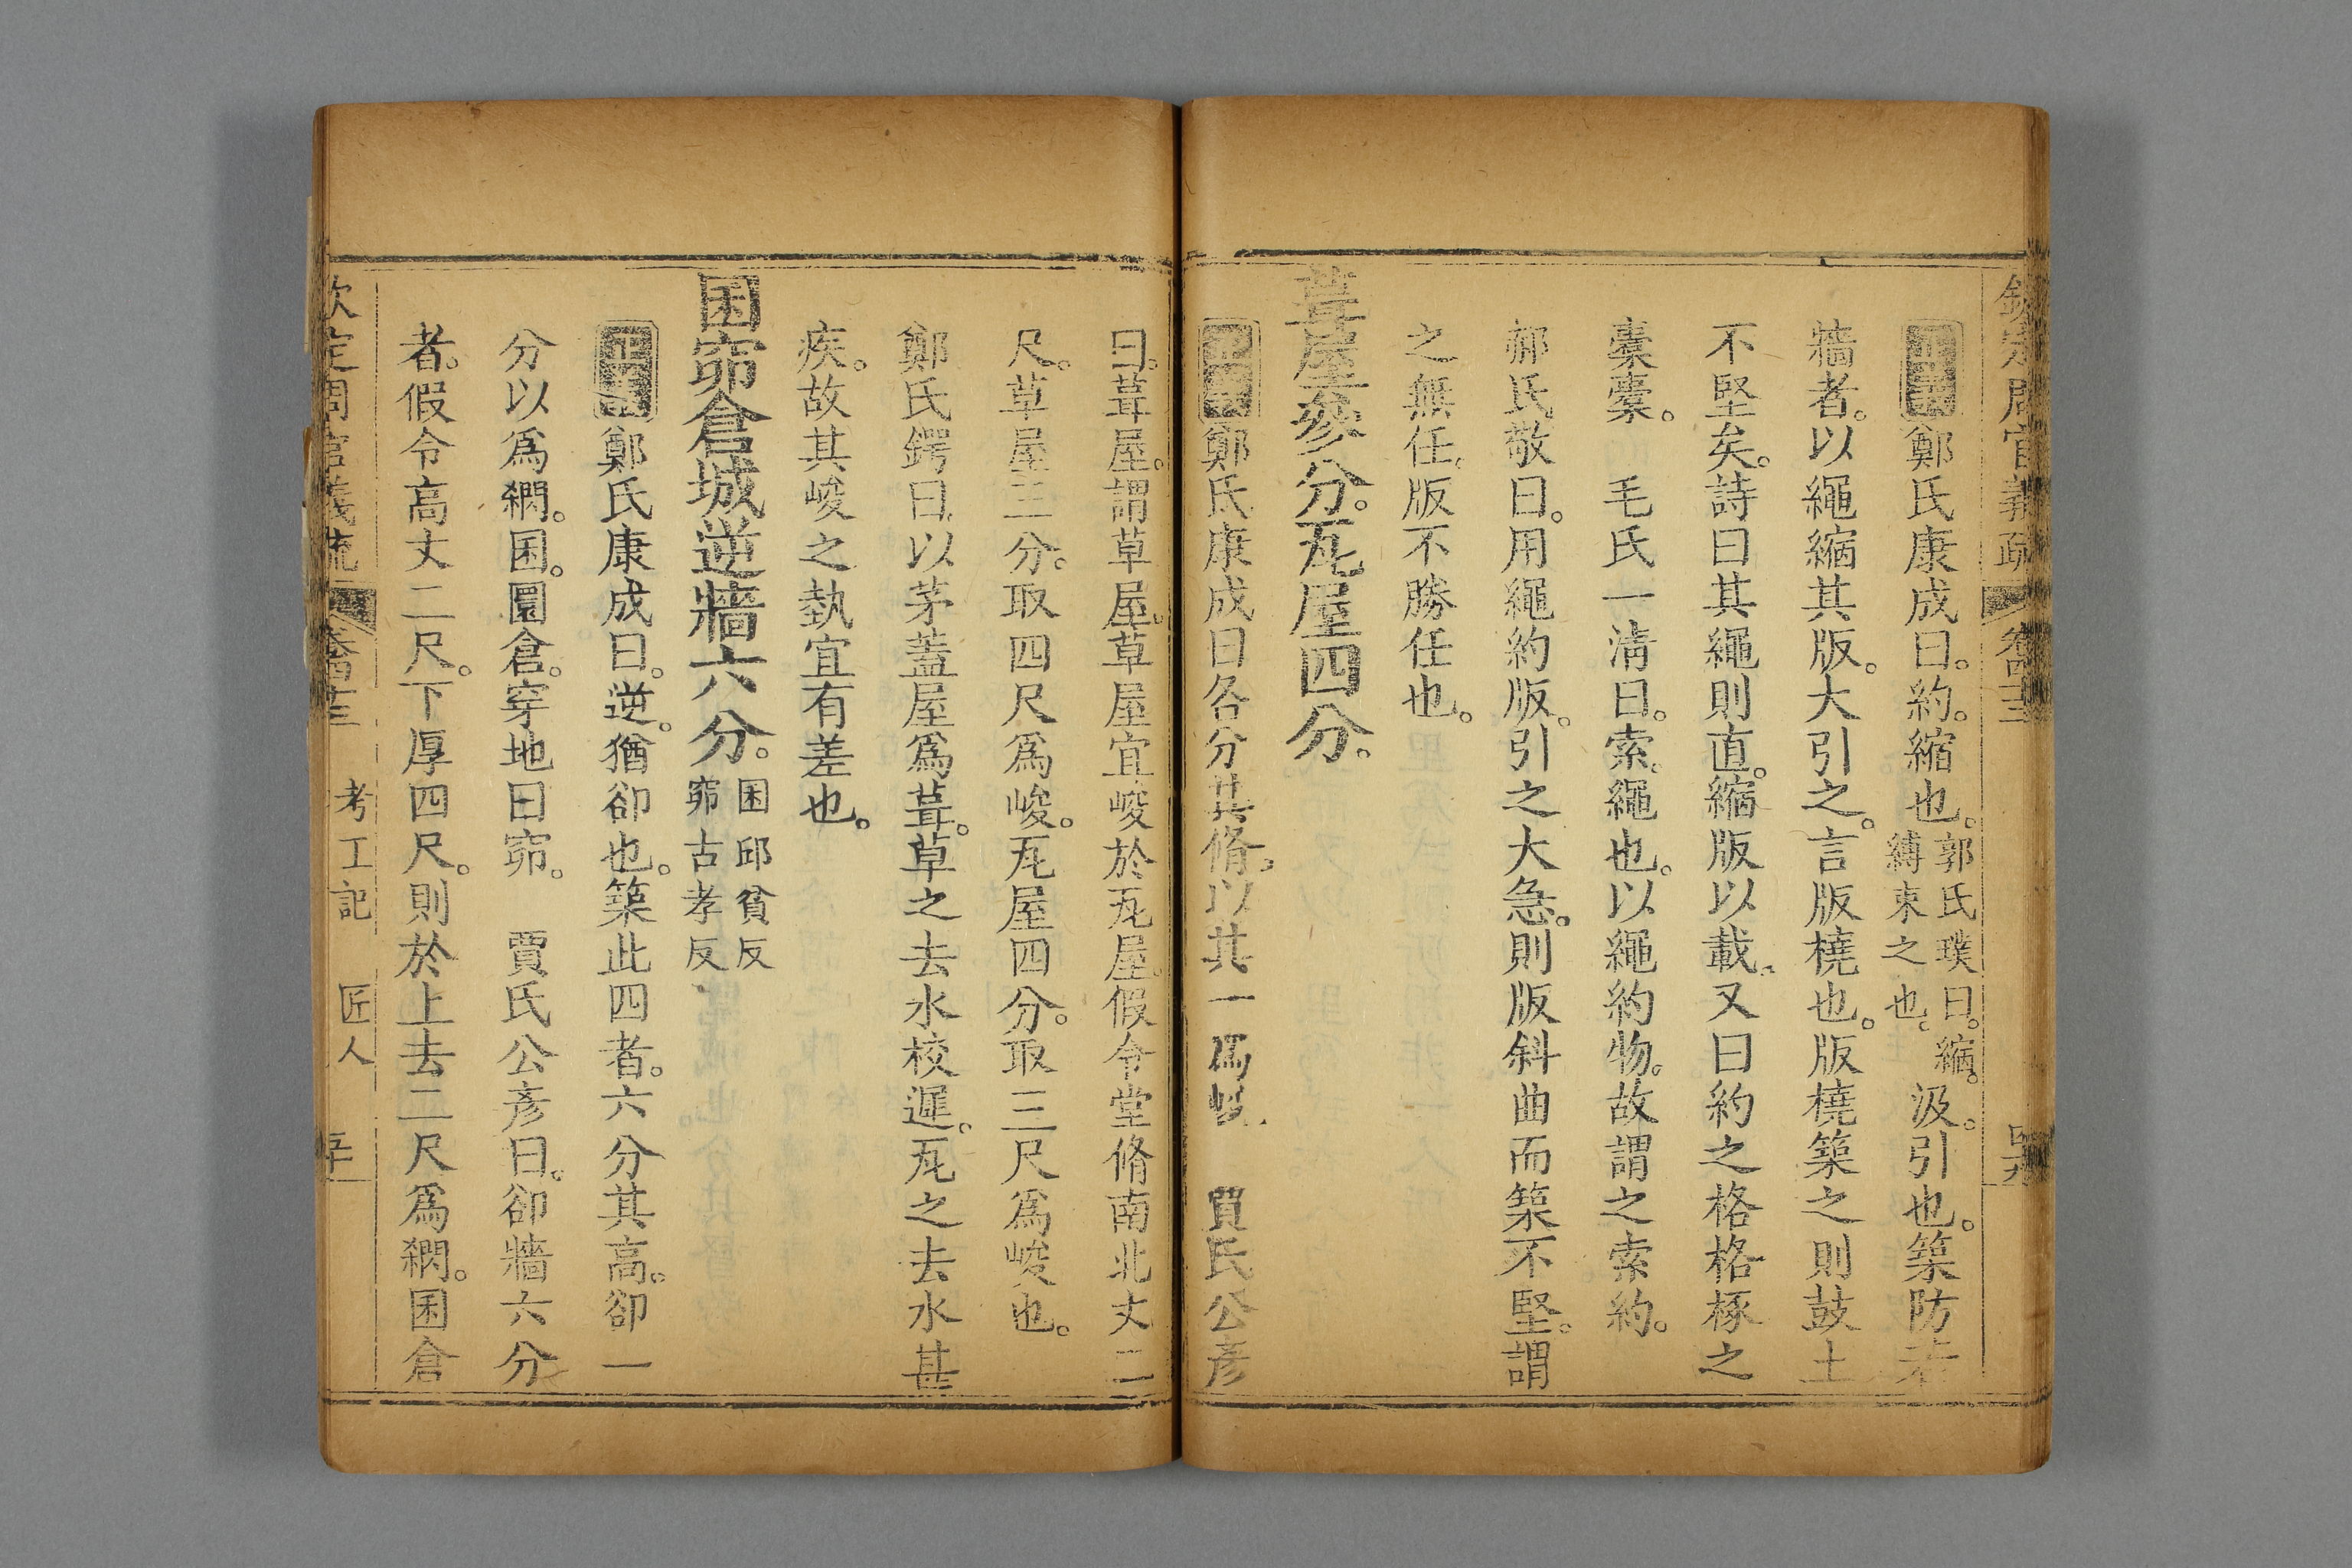 欽定周官義疏 卷四十三
正義鄭氏康成曰。約。縮也。郭氏璞曰。縮。縛束之也。汲。引也。築防若
牆者。以繩縮其版。大引之。言版橈也。版橈築之則鼓土
不堅矣。詩曰其繩則直。縮版以載。又曰約之格格椓之
橐橐。　毛氏一淸曰。索。繩也。以繩約物。故謂之索約。
郝氏敬曰。用繩約版。引之大急。則版斜曲而築不堅。謂
之無任。版不勝任也。
葺屋參分。瓦屋四分。
正義鄭氏康成曰各分其脩。以其一爲峻　賈氏公彥
曰。葺屋。謂草屋。草屋宜峻於瓦屋。假令堂脩南北丈二
尺。草屋三分。取四尺爲峻。瓦屋四分。取三尺爲峻也。
鄭氏鍔曰。以茅蓋屋爲葺。草之去水校遲。瓦之去水甚
疾。故其峻之埶宜有差也。
囷窌倉城逆牆六分。囷邱貧反窌古孝反
正義鄭氏康成曰。逆。猶卻也。築此四者。六分其高。卻一
分以爲䦂。囷。圜倉。穿地曰窌。　賈氏公彥曰。卻牆六分
者。假令高丈二尺。下厚四尺。則於上去二尺爲䦂。囷倉
欽定周官義疏 卷四十三 考工記 匠人